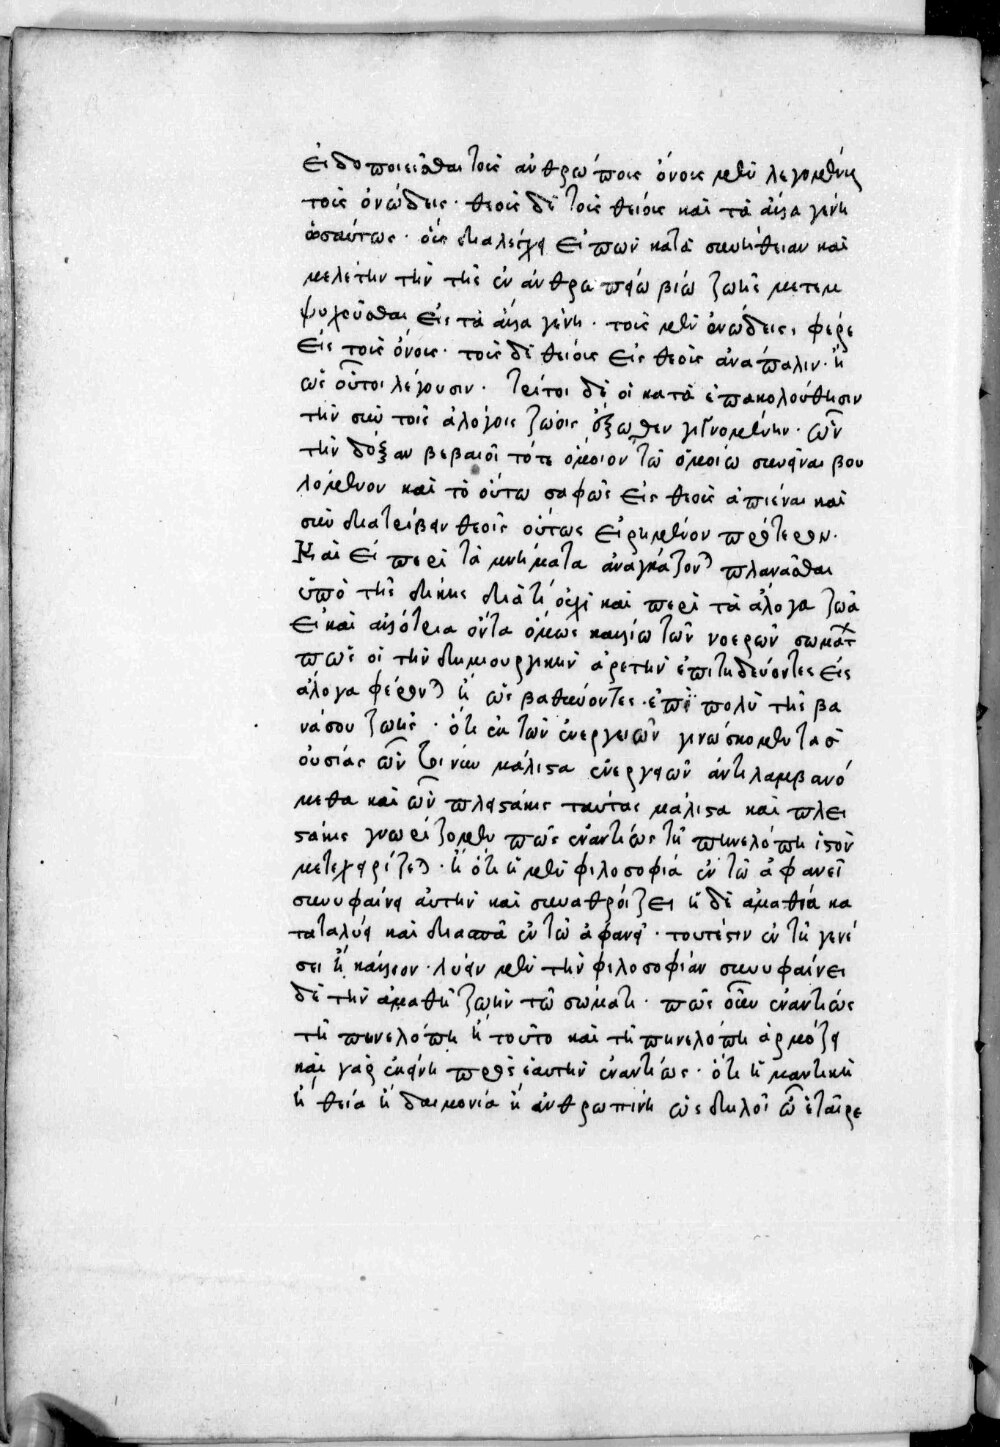 εἰδοποιεῖσθαι τοὺς ἀνθρώπους ὄνους μὲν λεγομένους
τοὺς ὀνώδεις· θεοὺς δὲ τοὺς θείους καὶ τὰ ἄλλα γένη
ὡσαύτως· οὓς διαλέγχει εἰπὼν κατὰ συνήθειαν καὶ
μελέτην τὴν τῆς ἐν ἀνθρωπείῳ βίῳ ζωῆς μετεμ
ψυχοῦσθαι εἰς τὰ ἄλλα γένη· τοὺς μὲν ὀνώδεις, φέρε
εἰς τοὺς ὄνους· τοὺς δὲ θείους εἰς θεοὺς ἀνάπαλιν· ἢ
ὡς οὗτοι λέγουσιν· τρίτοι δὲ οἱ κατὰ ἐπακολούθησιν
τὴν σὺν τοῖς ἀλόγοις ζώοις ἔξωθεν γινομένην· ὧν
τὴν δόξαν βεβαιοῖ τότε ὅμοιον τῷ ὁμοίῳ συνεῖναι βου
λόμενον καὶ τὸ οὕτω σαφῶς εἰς θεοὺς ἀπιέναι καὶ
συνδιατρίβειν θεοῖς οὕτως εἰρημένον πρότερον·
Καὶ εἰ περὶ τὰ μνήματα ἀναγκάζονται πλανᾶσθαι
ὑπὸ τῆς δίκης διὰ τί οὐχὶ καὶ περὶ τὰ ἄλογα ζῶα
εἰ καὶ ἀλλότρια ὄντα ὅμως καλλίω τῶν νοερῶν σωμάτ
πῶς οἱ τὴν δημιουργικὴν ἀρετὴν ἐπιτηδεύοντες εἰς
ἄλογα φέρονται ἢ ὡς βαθύνοντες ἐπὶ πολὺ τῆς βα
ναύσου ζωῆς· ὅτι ἐκ τῶν ἐνεργειῶν γινώσκομεν τὰς
οὐσίας ὧν μάλιστα ἐνεργειῶν ἀντιλαμβανό
μεθα καὶ ὧν πλειστάκις ταύτας μάλιστα καὶ πλει
στάκις γνωρίζομεν πῶς ἐναντίως τῇ πηνελόπῃ ἱστὸν
μεταχειρίζεται· ἢ ὅτι ἡ μὲν φιλοσοφία ἐν τῷ ἀφανεῖ
συνυφαίνει αὐτὴν καὶ συναθροίζει ἡ δὲ ἀμαθία κα
ταλύει καὶ διασπᾶ ἐν τῷ ἀφανεῖ· τουτέστιν ἐν τῇ γενέ
σει ἢ κάλλιον· λύειν μὲν τὴν φιλοσοφίαν συνυφαίνει
δὲ τὴν ἀμαθῆ ζωὴν τῷ σώματι· πῶς οὖν ἐναντίως
τῇ πηνελόπῃ ἢ τοῦτο καὶ τῇ πηνελόπῃ ἁρμόζει
καὶ γὰρ ἐκείνη πρὸς ἑαυτὴν ἐναντίως· ὅτι ἡ μαντικὴ
ἢ θεία ἢ δαιμονία ἢ ἀνθρωπίνη ὡς δηλοῖ ὦ ἑταῖρε